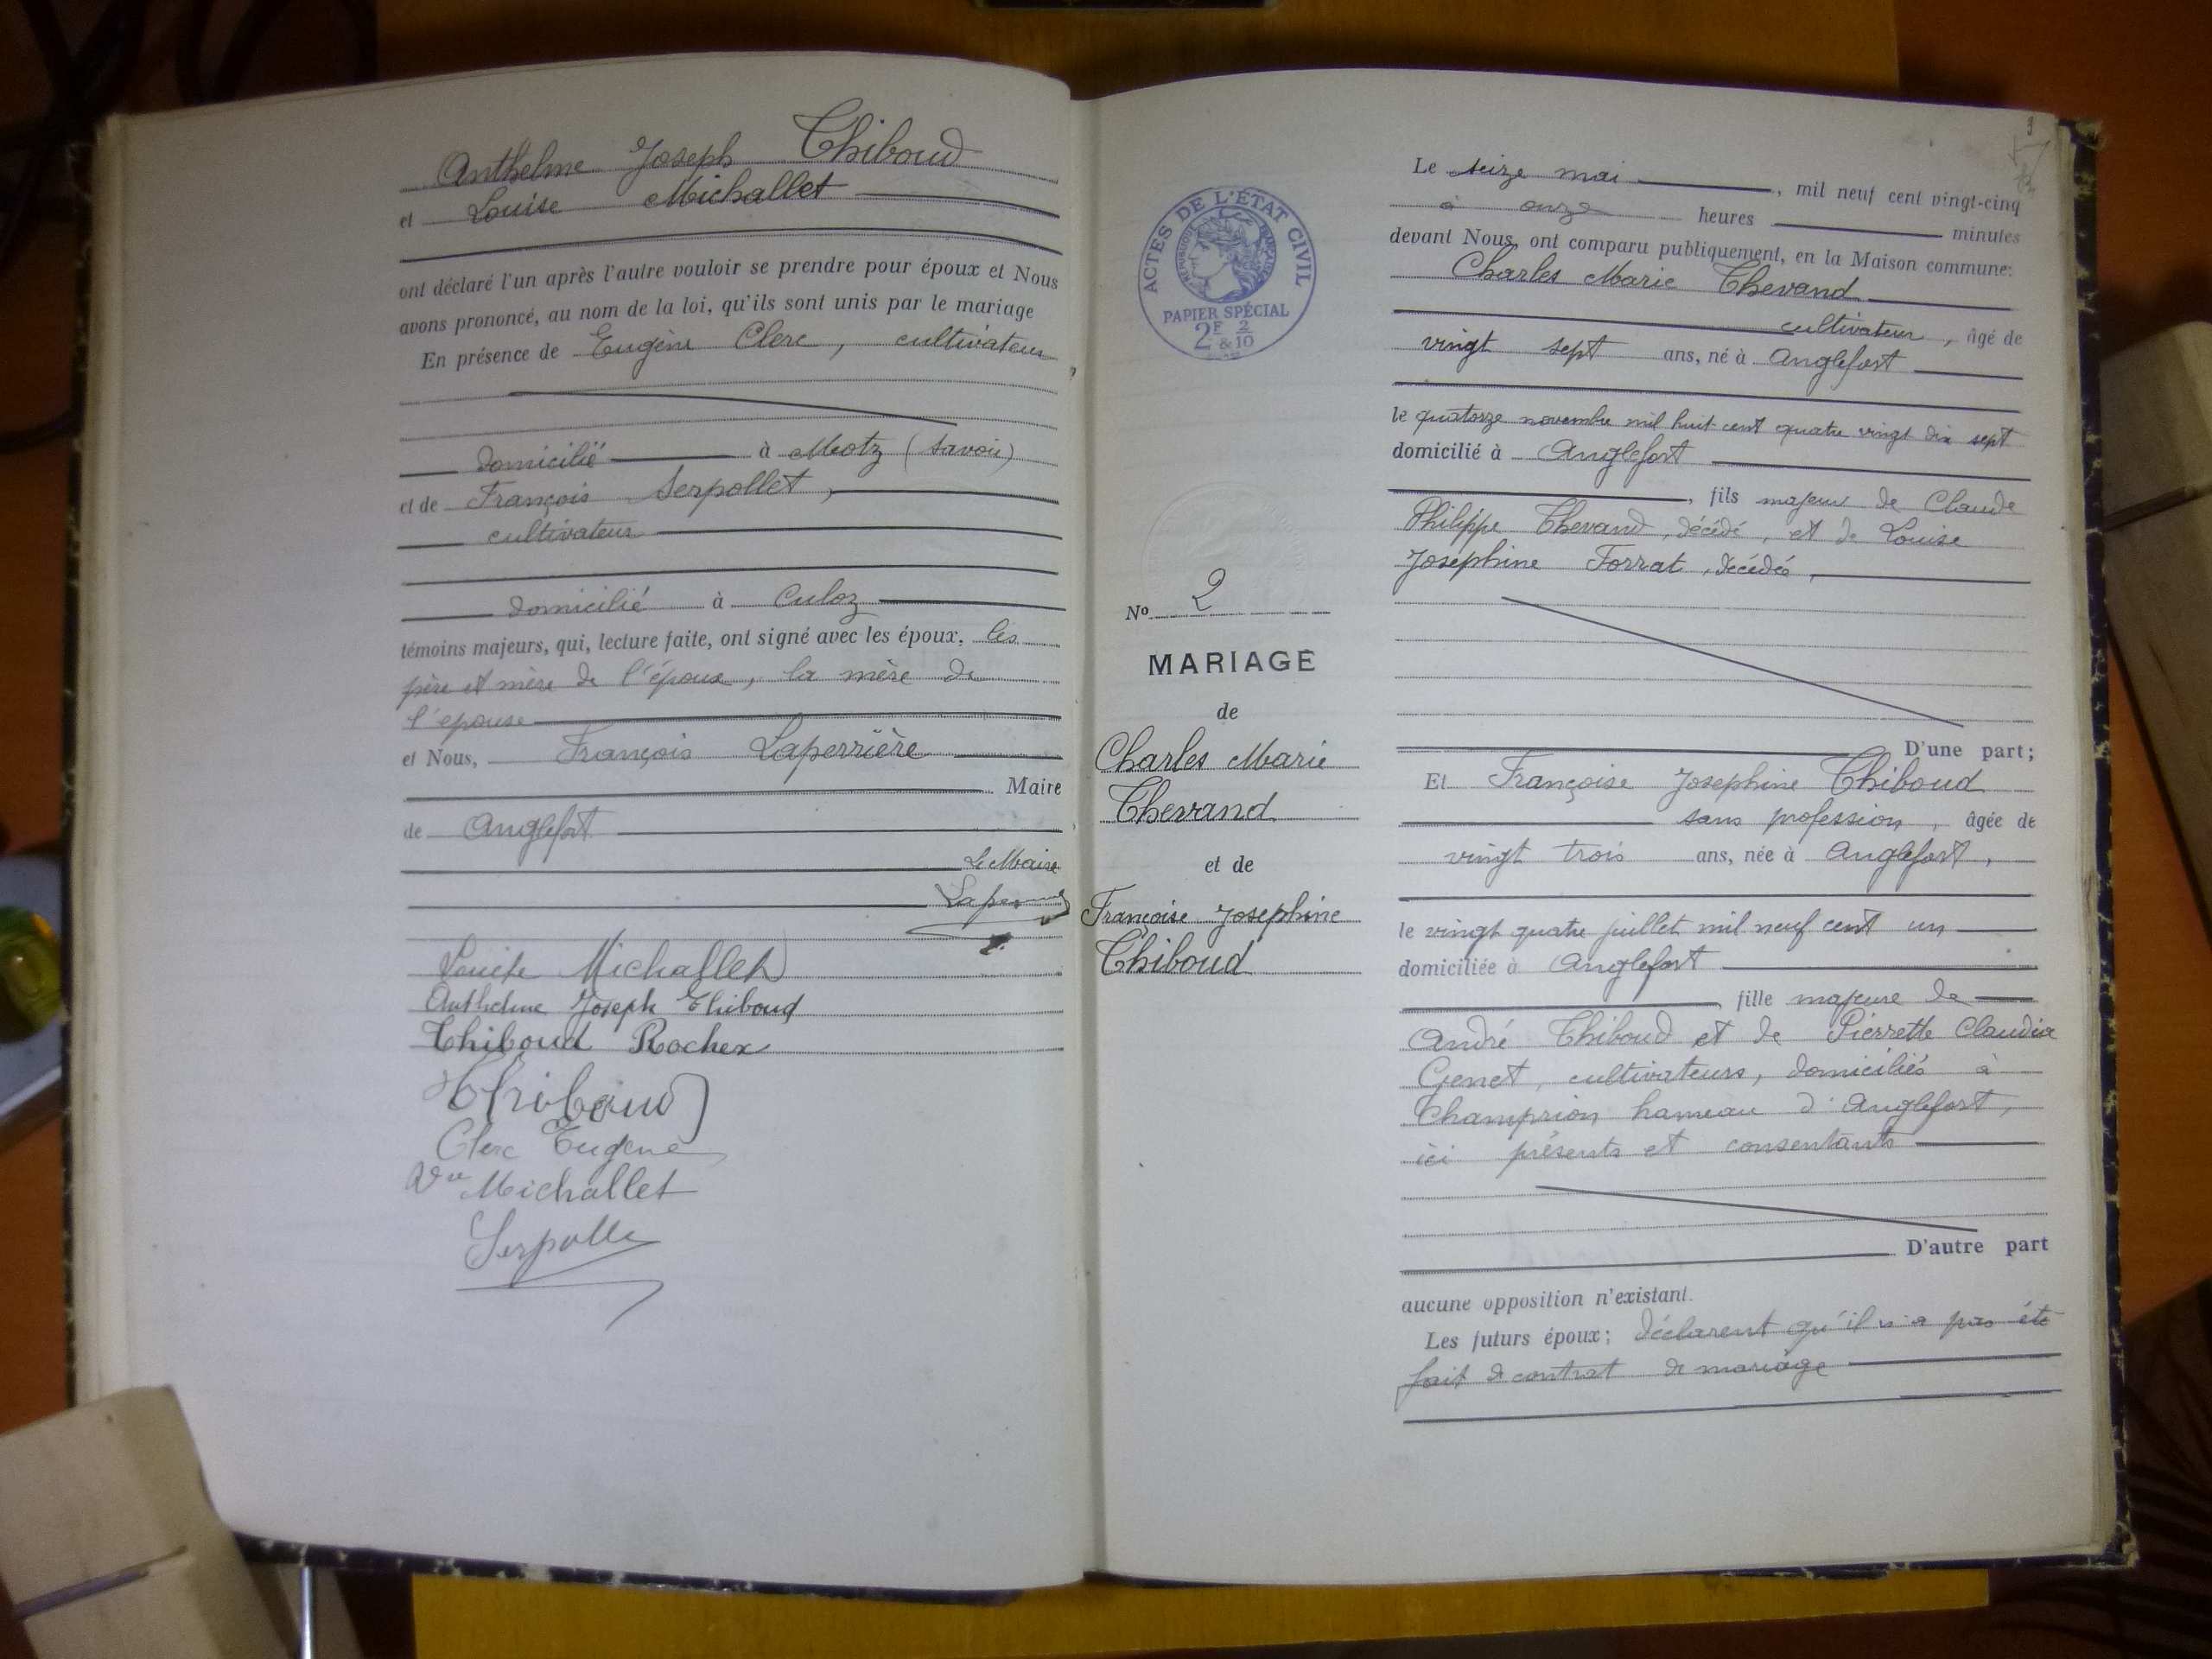 Anthelme Joseph Thiboud
et Louise Michallet
ont déclaré l'un après l'autre vouloir se prendre pour époux et Nous
avons prononcé, au nom de la loi, qu'ils sont unis par le mariage
En présence de Eugène Clerc, cultivateur
domicilié à Motz (Savoie)
et de François Serpollet,
cultivateur
domicilié à Culoz
témoins majeurs, qui, lecture faite, ont signé avec les époux, les
père et mère de l'époux, la mère de
l'épouse
et Nous, François Laperrière
Maire
de Anglefort
Le Maire
Louise Michallet
Anthelme Joseph Thiboud
Thiboud Rochex
Thiboud
Clerc Eugène
Vve Michallet
ACTES DE L'ÉTAT CIVIL
RÉPUBLIQUE FRANÇAISE
PAPIER SPÉCIAL
2F & 2/10
No 2
MARIAGE
de
Charles Marie
Thevand
et de
Françoise Joséphine
Thiboud
3
Le seize mai, mil neuf cent vingt-cinq
à onze heures minutes
devant Nous, ont comparu publiquement, en la Maison commune:
Charles Marie Thevand
cultivateur, âgé de
vingt sept ans, né à Anglefort
le quatorze novembre mil huit cent quatre vingt dix sept
domicilié à Anglefort
, fils majeur de Claude
Philippe Thevand, décédé, et de Louise
Joséphine Forrat, décédée,
D'une part;
Et Françoise Joséphine Thiboud
sans profession, âgée de
vingt trois ans, née à Anglefort,
le vingt quatre juillet mil neuf cent un
domiciliée à Anglefort
, fille majeure de
André Thiboud et de Pierrette Claudia
Genet, cultivateurs, domiciliés à
Champrion hameau d'Anglefort,
ici présents et consentants
D'autre part
aucune opposition n'existant.
Les futurs époux; déclarent qu'il n'a pas été
fait de contrat de mariage